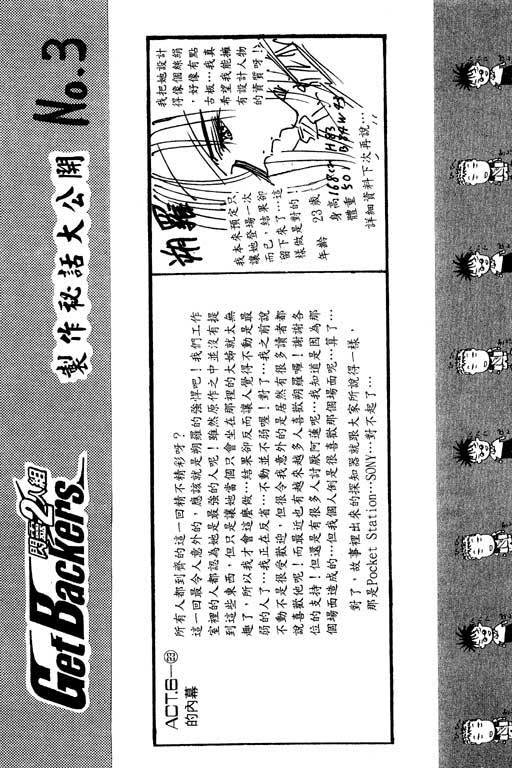 閃靈2人組
GetBackers
製作秘話大公開
No.3
ACT.6—㉓
的內幕
所有人都到齊的這一回精不精彩呀？
這一回最令人意外的，應該就是朔羅的強悍吧！我們工作
室裡的人都認為她是最強的人呢！雖然原作之中並沒有提
到這些東西，但只是讓她當個只會坐在那裡的大姊就太無
趣了，所以我才會這麼做…結果卻反而讓人覺得不動是最
弱的人了…我正在反省…不動並不弱喔！對了…我之前說
不動不是很受歡迎，但很令我意外的是居然有很多讀者都
說喜歡他呢！而最近也有越來越多人喜歡朔羅囉！謝謝各
位的支持！但還是有很多人討厭阿蓮呢…我知道是因為那
個場面造成的…但我個人倒是很喜歡那個場面呢…算了…
對了，故事裡出來的探知器就跟大家所說得一樣，
那是Pocket Station…SONY…對不起了…
朔羅
我本來預定只
讓她登場一次
而已，結果卻
留下來了…這
樣做是對的！
年齡 23歲
身高 168cm
體重 50
詳細資料下次再說…
我把她設計
得像個絲絹
，好像有點
古板…我真
希望我能擁
有設計人物
的資質呀！